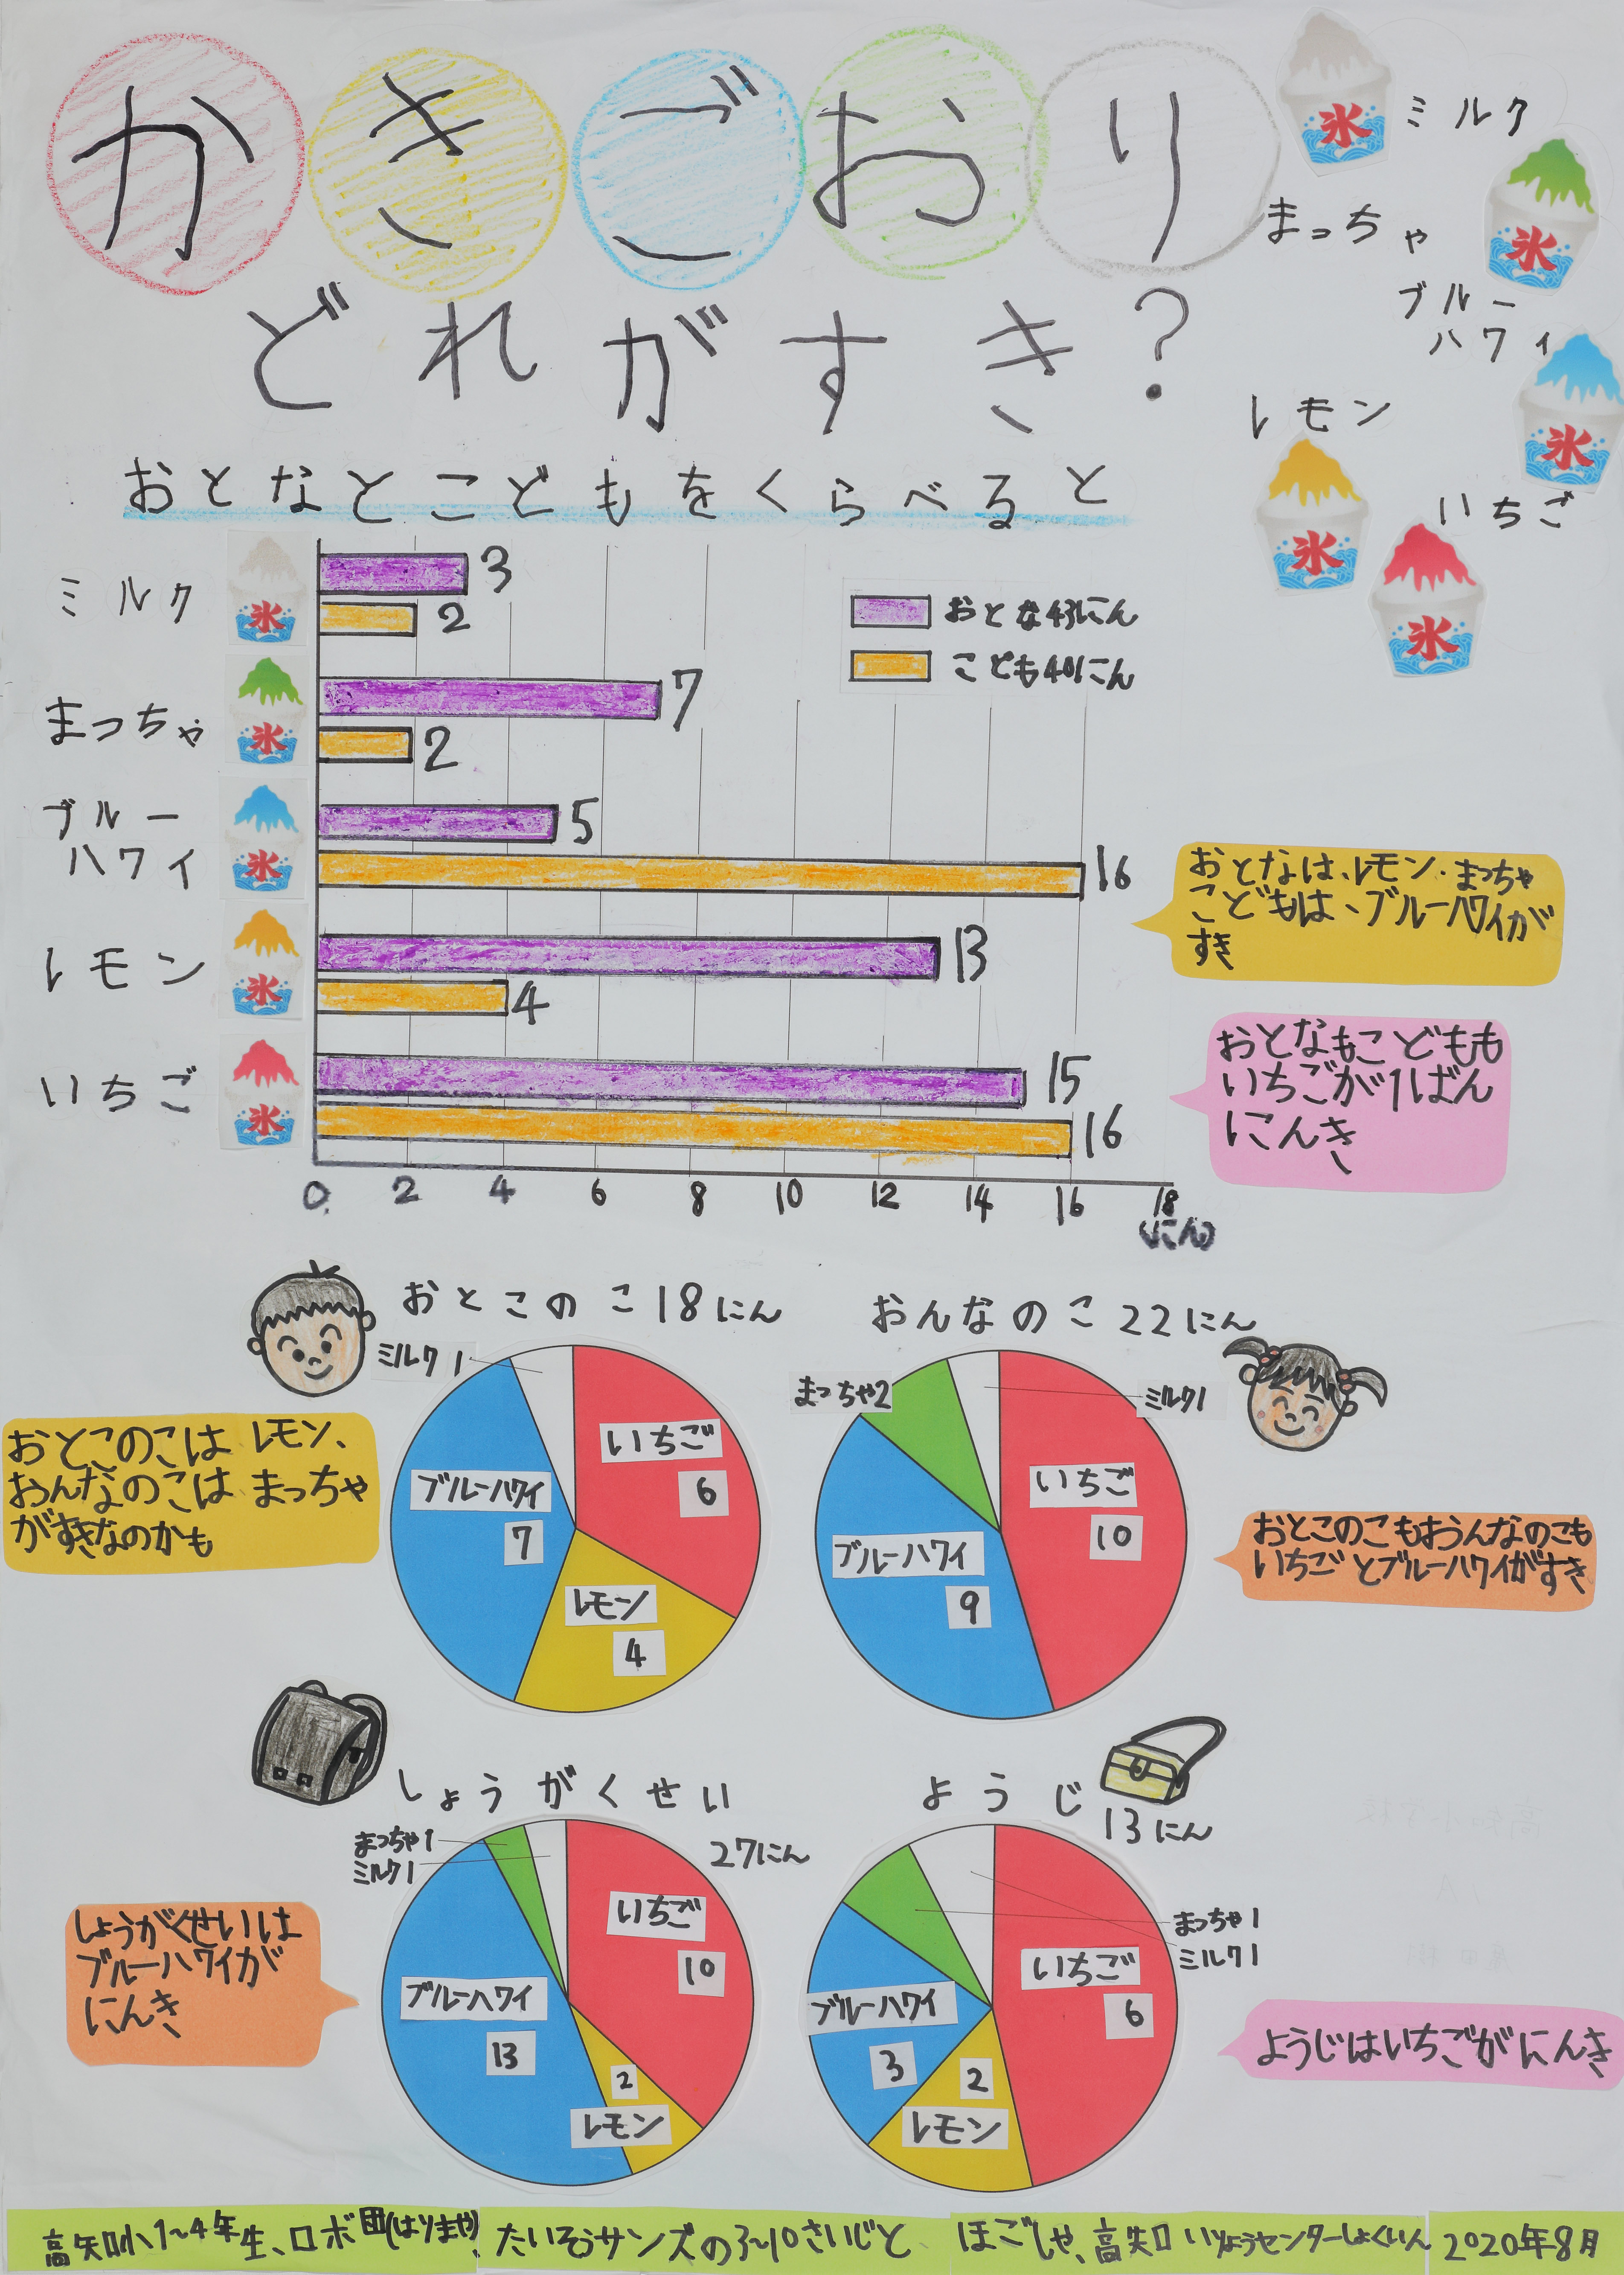 かきごおり
どれがすき?
ミルク
まっちゃ
ブルー
ハワイ
レモン
いちご
氷
氷
氷
氷
氷
おとなとこどもをくらべると
おとな43にん
こども40にん
ミルク
氷
3
2
まっちゃ
氷
7
2
ブルー
ハワイ
氷
5
16
レモン
氷
13
4
いちご
氷
15
16
0 2 4 6 8 10 12 14 16 18
(にん)
おとなは、レモン・まっちゃ
こどもは、ブルーハワイが
すき
おとなもこどもも
いちごが1ばん
にんき
おとこのこ18にん
ミルク1
いちご
6
ブルーハワイ
7
レモン
4
おんなのこ22にん
まっちゃ2
ミルク1
いちご
10
ブルーハワイ
9
おとこのこはレモン、
おんなのこはまっちゃ
がすきなのかも
おとこのこもおんなのこも
いちごとブルーハワイがすき
しょうがくせい
27にん
まっちゃ1
ミルク1
いちご
10
ブルーハワイ
13
2
レモン
ようじ
13にん
まっちゃ1
ミルク1
いちご
6
ブルーハワイ
3
2
レモン
しょうがくせいは
ブルーハワイが
にんき
ようじはいちごがにんき
高知小1~4年生、ロボ団(はりまや)、たいそうサンズの3~10さいじと ほごしゃ、高知口いりょうセンターしょくいん 2020年8月